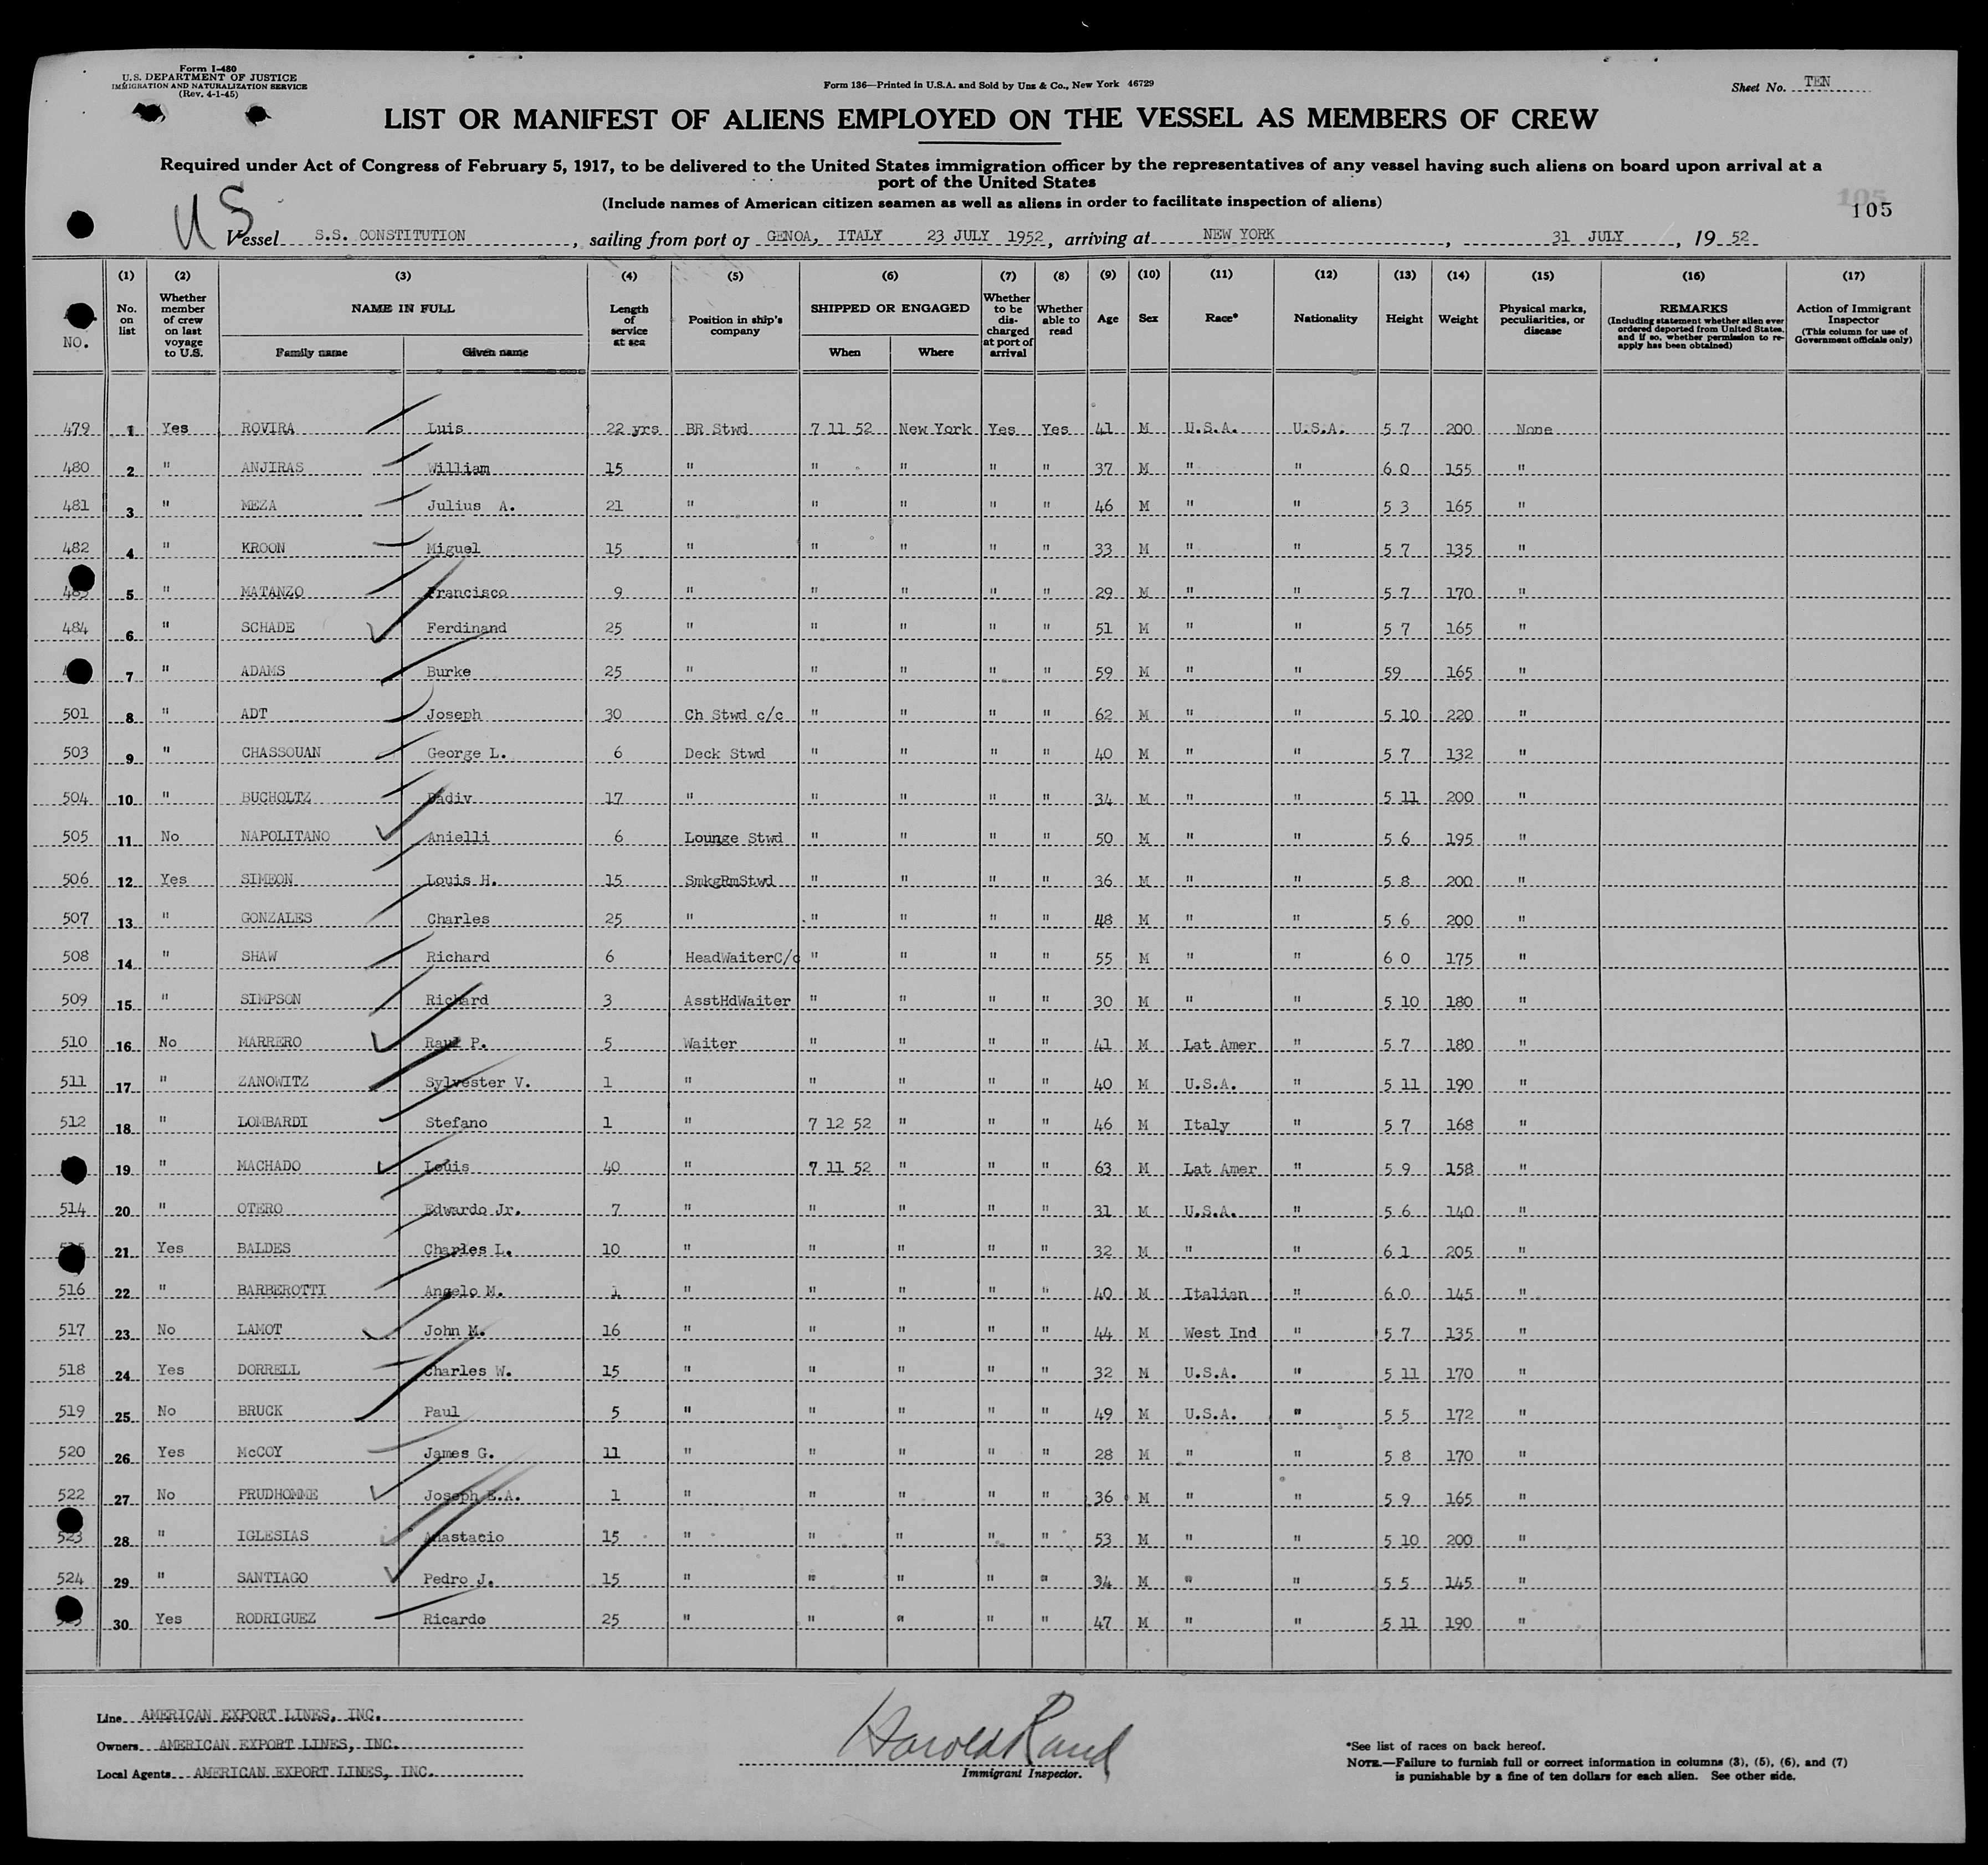 Form I-480
U.S. DEPARTMENT OF JUSTICE
IMMIGRATION AND NATURALIZATION SERVICE
(Rev. 4-1-45)
Form 136—Printed in U.S.A. and Sold by Unz & Co., New York 46729
Sheet No. TEN
LIST OR MANIFEST OF ALIENS EMPLOYED ON THE VESSEL AS MEMBERS OF CREW
Required under Act of Congress of February 5, 1917, to be delivered to the United States immigration officer by the representatives of any vessel having such aliens on board upon arrival at a
port of the United States
(Include names of American citizen seamen as well as aliens in order to facilitate inspection of aliens)
105
US
Vessel S.S. CONSTITUTION, sailing from port of GENOA, ITALY 23 JULY 1952, arriving at NEW YORK, 31 JULY, 19 52
NO. (1) No. on list (2) Whether member of crew on last voyage to U.S. (3) NAME IN FULL Family name Given name (4) Length of service at sea (5) Position in ship's company (6) SHIPPED OR ENGAGED When Where (7) Whether to be discharged at port of arrival (8) Whether able to read (9) Age (10) Sex (11) Race* (12) Nationality (13) Height (14) Weight (15) Physical marks, peculiarities, or disease (16) REMARKS (Including statement whether alien ever ordered deported from United States, and if so, whether permission to re-apply has been obtained) (17) Action of Immigrant Inspector (This column for use of Government officials only)
479 1 Yes ROVIRA Luis 22 yrs BR Stwd 7 11 52 New York Yes Yes 41 M U.S.A. U.S.A. 5 7 200 None
480 2 " ANJIRAS William 15 " " " " " 37 M " " 6 0 155 "
481 3 " MEZA Julius A. 21 " " " " " 46 M " " 5 3 165 "
482 4 " KROON Miguel 15 " " " " " 33 M " " 5 7 135 "
483 5 " MATANZO Francisco 9 " " " " " 29 M " " 5 7 170 "
484 6 " SCHADE Ferdinand 25 " " " " " 51 M " " 5 7 165 "
7 " ADAMS Burke 25 " " " " " 59 M " " 59 165 "
501 8 " ADT Joseph 30 Ch Stwd c/c " " " " 62 M " " 5 10 220 "
503 9 " CHASSOUAN George L. 6 Deck Stwd " " " " 40 M " " 5 7 132 "
504 10 " BUCHOLTZ Dadiv 17 " " " " " 34 M " " 5 11 200 "
505 11 No NAPOLITANO Anielli 6 Lounge Stwd " " " " 50 M " " 5 6 195 "
506 12 Yes SIMEON Louis H. 15 SmkgRmStwd " " " " 36 M " " 5 8 200 "
507 13 " GONZALES Charles 25 " " " " " 48 M " " 5 6 200 "
508 14 " SHAW Richard 6 HeadWaiterC/c " " " " 55 M " " 6 0 175 "
509 15 " SIMPSON Richard 3 AsstHdWaiter " " " " 30 M " " 5 10 180 "
510 16 No MARRERO Raul P. 5 Waiter " " " " 41 M Lat Amer " 5 7 180 "
511 17 " ZANOWITZ Sylvester V. 1 " " " " " 40 M U.S.A. " 5 11 190 "
512 18 " LOMBARDI Stefano 1 " 7 12 52 " " " 46 M Italy " 5 7 168 "
19 " MACHADO Louis 40 " 7 11 52 " " " 63 M Lat Amer " 5 9 158 "
514 20 " OTERO Edwardo Jr. 7 " " " " " 31 M U.S.A. " 5 6 140 "
21 Yes BALDES Charles L. 10 " " " " " 32 M " " 6 1 205 "
516 22 " BARBEROTTI Angelo M. 1 " " " " " 40 M Italian " 6 0 145 "
517 23 No LAMOT John M. 16 " " " " " 44 M West Ind " 5 7 135 "
518 24 Yes DORRELL Charles W. 15 " " " " " 32 M U.S.A. " 5 11 170 "
519 25 No BRUCK Paul 5 " " " " " 49 M U.S.A. " 5 5 172 "
520 26 Yes McCOY James G. 11 " " " " " 28 M " " 5 8 170 "
522 27 No PRUDHOMME Joseph E.A. 1 " " " " " 36 M " " 5 9 165 "
523 28 " IGLESIAS Anastacio 15 " " " " " 53 M " " 5 10 200 "
524 29 " SANTIAGO Pedro J. 15 " " " " " 34 M " " 5 5 145 "
30 Yes RODRIGUEZ Ricardo 25 " " " " " 47 M " " 5 11 190 "
Line AMERICAN EXPORT LINES, INC.
Owners AMERICAN EXPORT LINES, INC.
Local Agents AMERICAN EXPORT LINES, INC.
Harold Rand
Immigrant Inspector.
*See list of races on back hereof.
NOTE.—Failure to furnish full or correct information in columns (3), (5), (6), and (7)
is punishable by a fine of ten dollars for each alien. See other side.